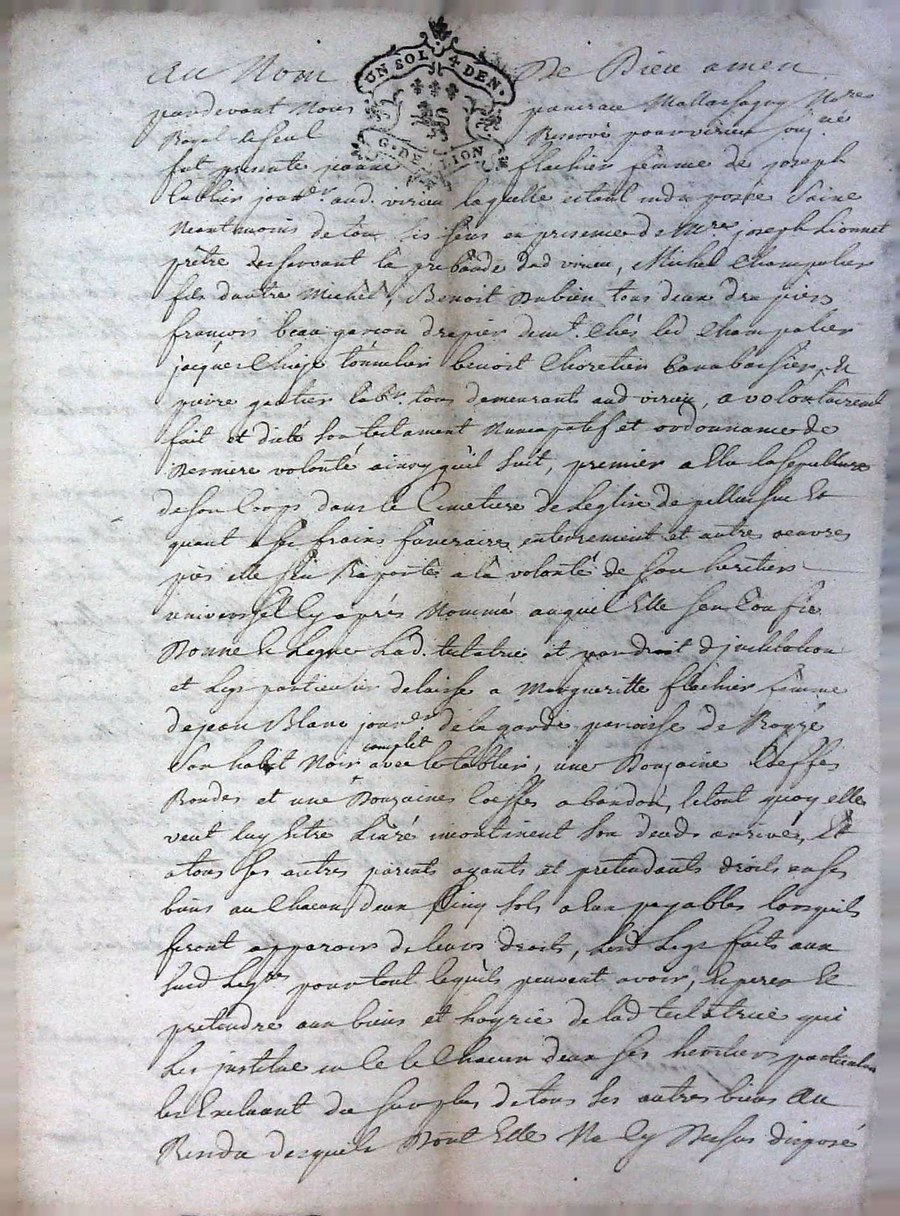 UN SOL 4 DEN.
G. DE LION
au Nom De Dieu amen
pardevant Nous Mallassagny No.re
Royal le seul Reservé pour virieu
fut presente flachier femme de joseph
jour.er aud. virieu laquelle estant indisposée Saine
Neantmoins de tous ses sens en presence de M.re joseph Lionnet
prêtre desservant la prebande dud virieu, Michel Champalier
fils d'autre Michel, Benoit Dubien tous deux drapiers
françois beau garçon drapier dem.t Chés led Champalier
jacque Chieze benoit Choretien &
pierre gautier lab.r tous demeurants aud virieu, a volontairement
fait et dicté son testament Nuncupatif et ordonnance de
Derniere volonté ainsy quil suit, premier a elleu la sepulture
de son Corps dans le Cimetiere de Leglise de pellussieu Et
quant a ses frains funeraires enterrement et autres oeuvres
pies elle sen Raporte a la volonté de son heritier
universel Cy aprés Nommé auquel Elle sen Confie
Donne et Legue Lad. testatrice et par droit d'institution
et Legs particulier delaisse a Margueritte flachier femme
de jean Blanc jour.er de la garde paroisse de
Son habit Noir complet avec le tablier, une Douzaine Coeffes
Rondes et une Douzaines Coeffes a bandon, le tout quoy elle
veut luy Estre Livré incontinent Son deceds arrivé, Et
a tous ses autres parents ayants et pretendants droits en ses
biens au Chacun deux Cinq sols a Eux payables lorsquils
feront apparoir de leurs droits, Lesd Legs faits aux
susd Leg.res pour tout ce quils peuvent avoir, Esperer Et
pretendre aux biens et hoyrie de lad testatrice qui
Les institue en ce le Chacun deux ses heritiers particuliers
les Excluant du surplus de tous ses autres biens Au
Residu desquels Dont Elle Na Cy Dessus disposé